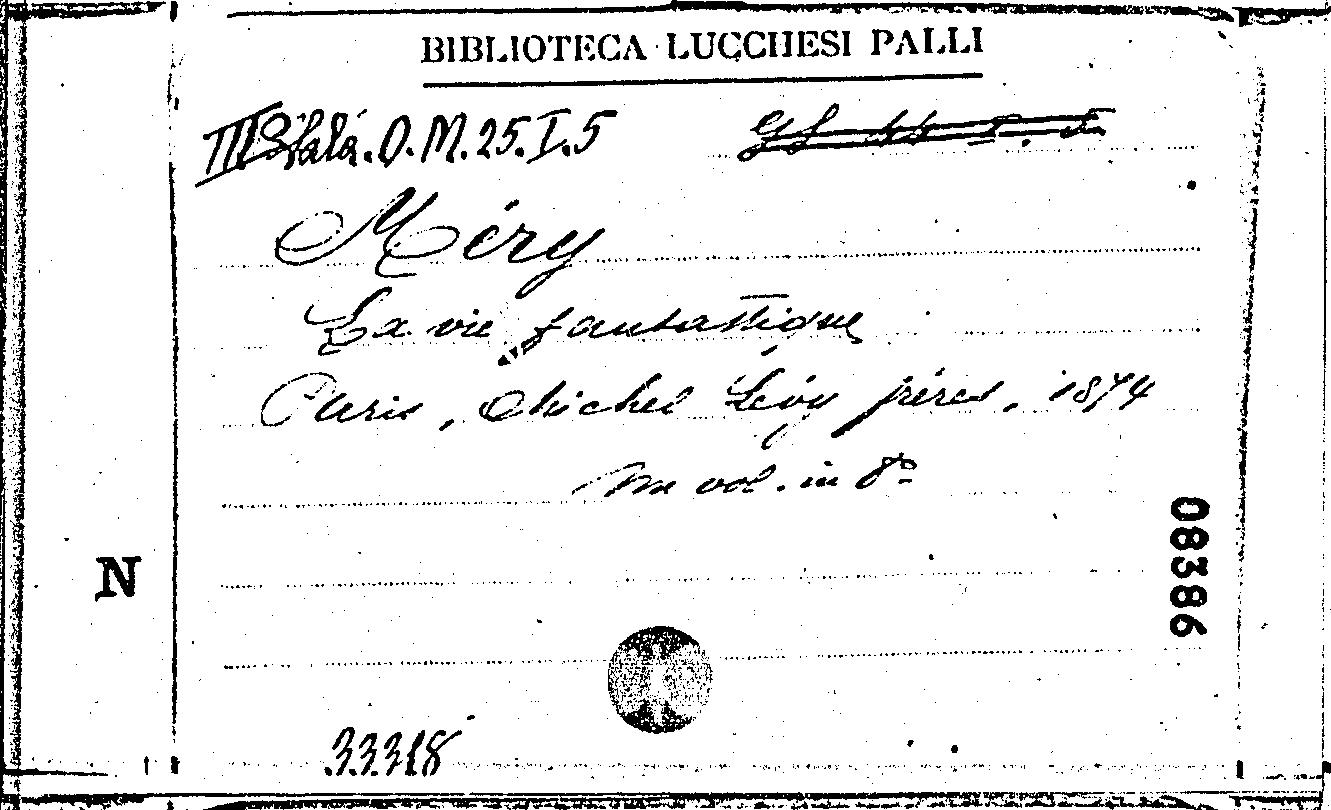 BIBLIOTECA LUCCHESI PALLI
III Sala. O. M. 25. I. 5
Méry
La vie fantastique
Paris, Michel Lévy frères, 1874
un vol. in 8º
N
08386
33318